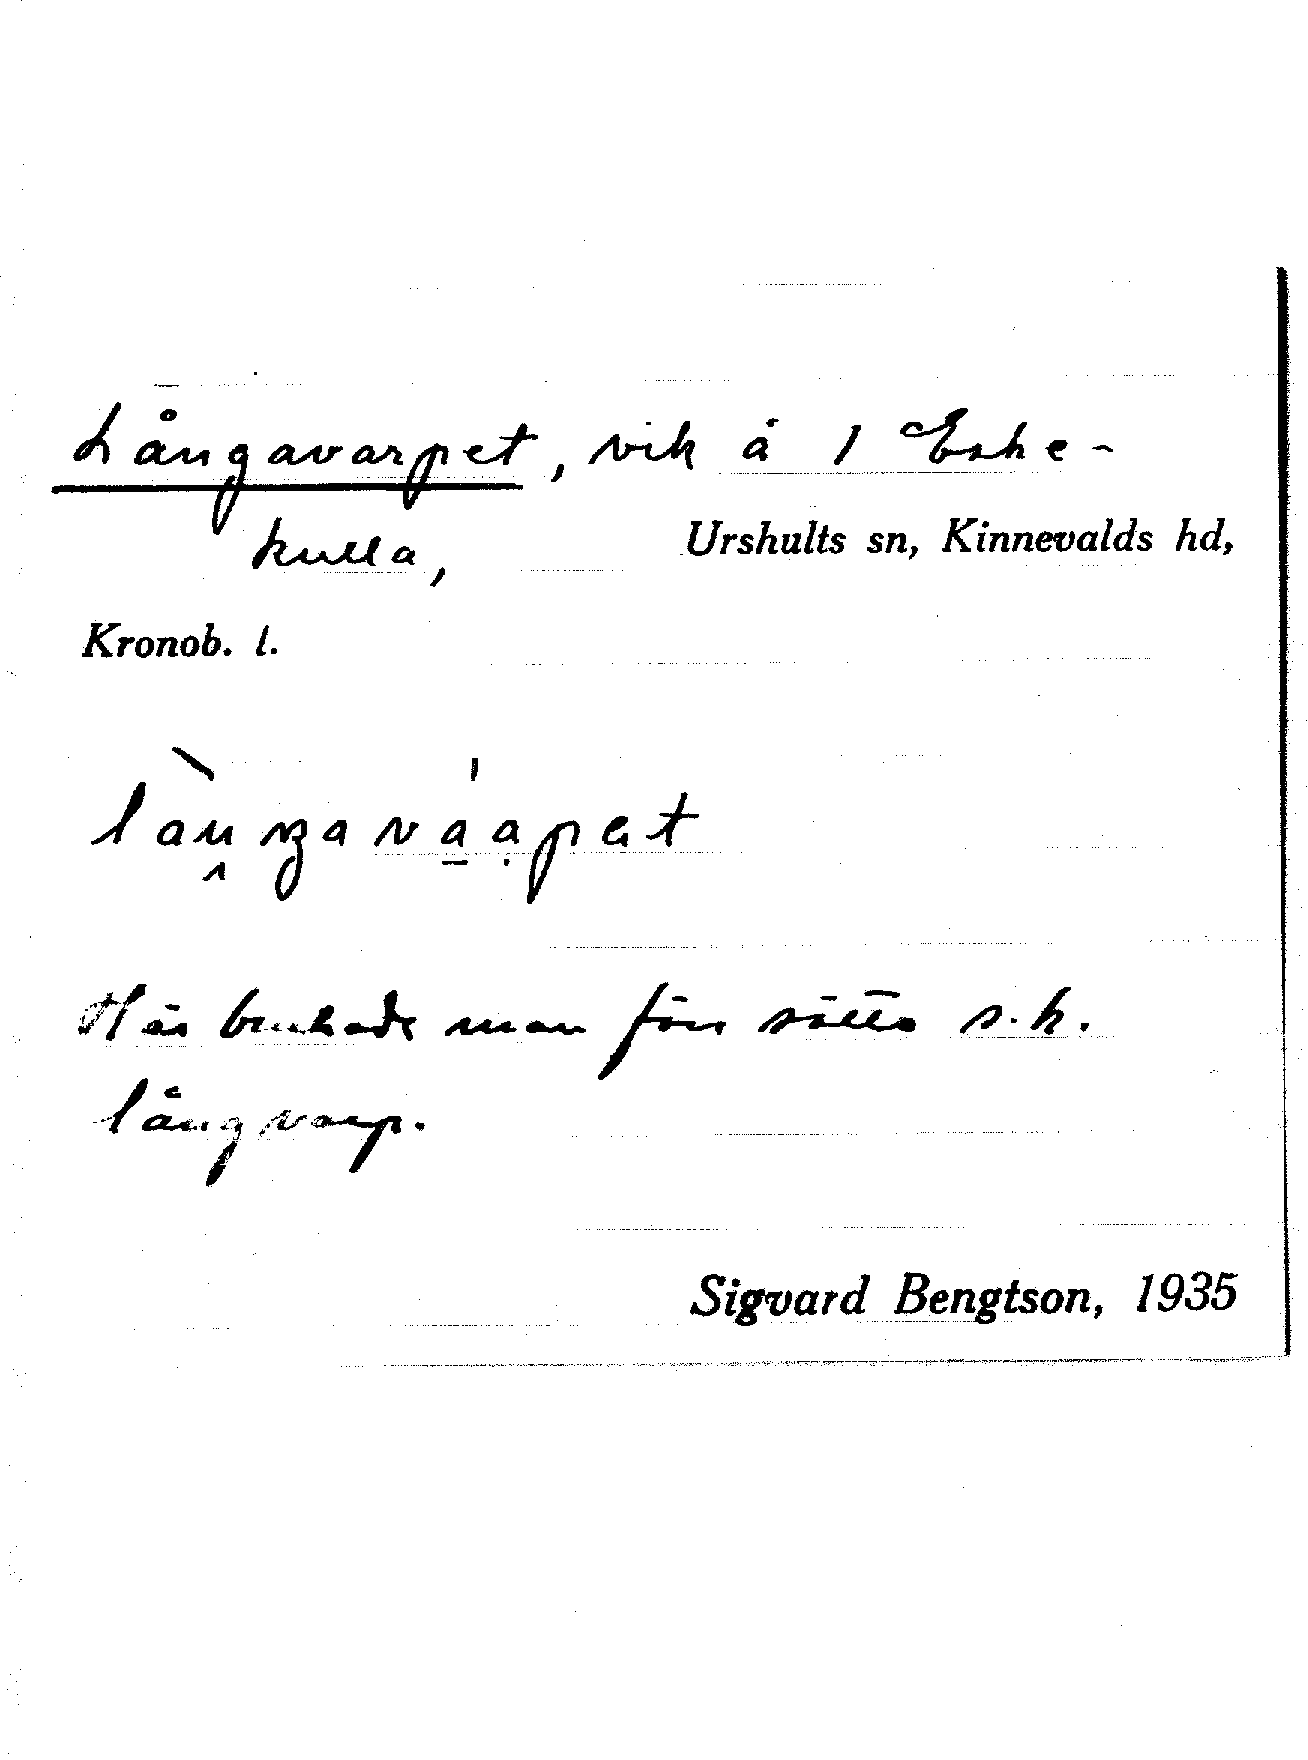 Långavarpet, vik å 1 Eske-
kulla, Urshults sn, Kinnevalds hd,
Kronob. l.
Här brukade man förr sätta s.k.
långvarp.
Sigvard Bengtson, 1935